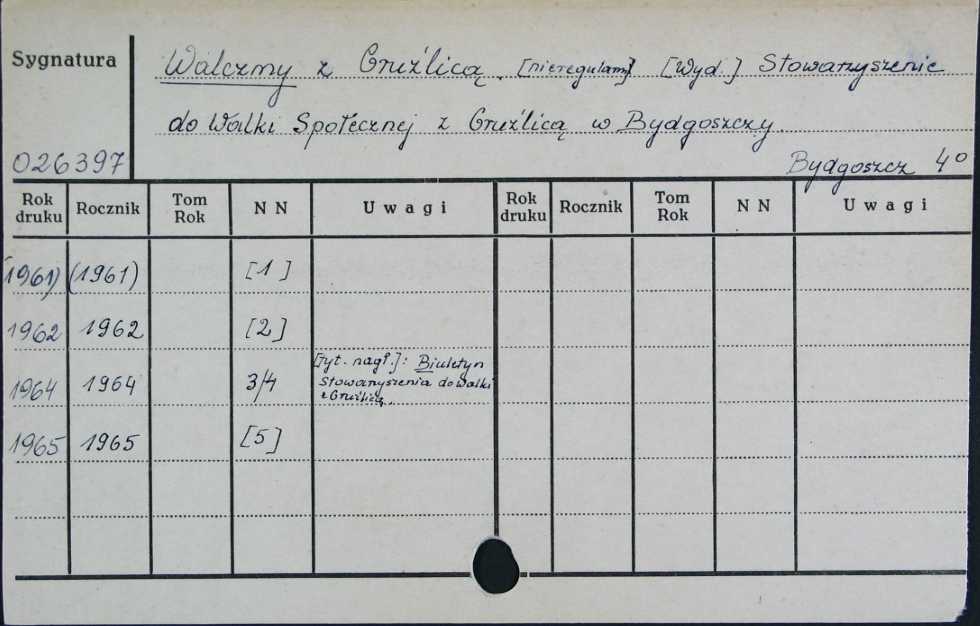 Sygnatura
Walczmy z Gruźlicą. [nieregularn] [Wyd.] Stowarzyszenie
do Walki Społecznej z Gruźlicą w Bydgoszczy.
026397 Bydgoszcz 4°
Rok druku Rocznik Tom Rok NN Uwagi Rok druku Rocznik Tom Rok NN Uwagi
(1961) (1961) [1]
1962 1962 [2]
1964 1964 3/4 [tyt. nagł.]: Biuletyn
Stowarzyszenia do Walki
z Gruźlicą.
1965 1965 [5]